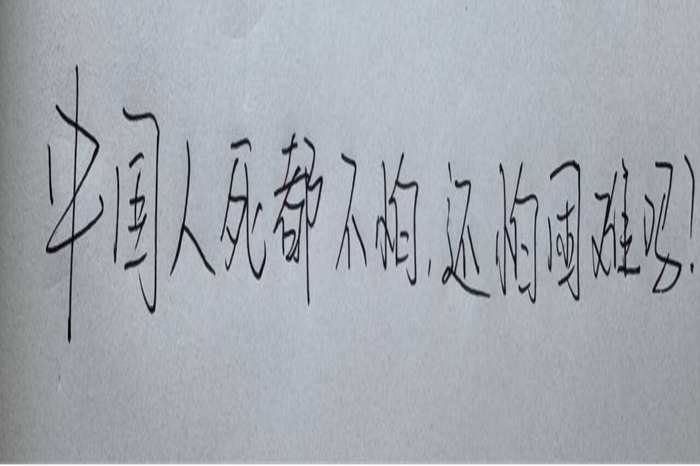 中国人死都不怕,还怕困难吗!